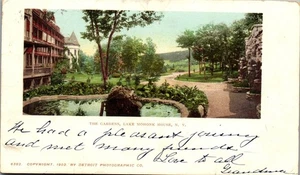 THE GARDENS, LAKE MOHONK HOUSE, N. Y.
He had a pleasant journey
and met many friends
Love to all
Grandma
COPYRIGHT, 1902, BY DETROIT PHOTOGRAPHIC CO.